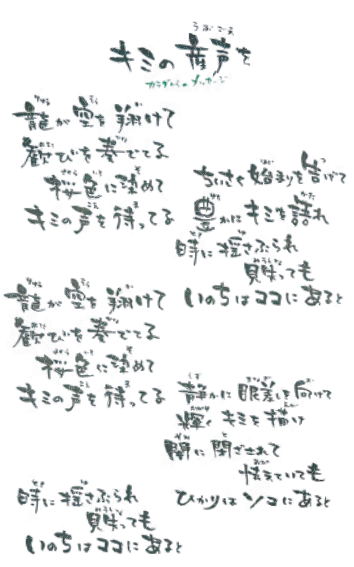 キミの産声を
カラダからのメッセージ
龍が空を翔けて
歓びを奏でてる
桜色に染めて
キミの声を待ってる
ちいさく始まりを告げて
豊かにキミを語れ
時に揺さぶられ
見失っても
いのちはココにあると
龍が空を翔けて
歓びを奏でてる
桜色に染めて
キミの声を待ってる
静かに眼差しを向けて
輝くキミを描け
闇に閉ざされて
怯えていても
ひかりはソコにあると
時に揺さぶられ
見失っても
いのちはココにあると